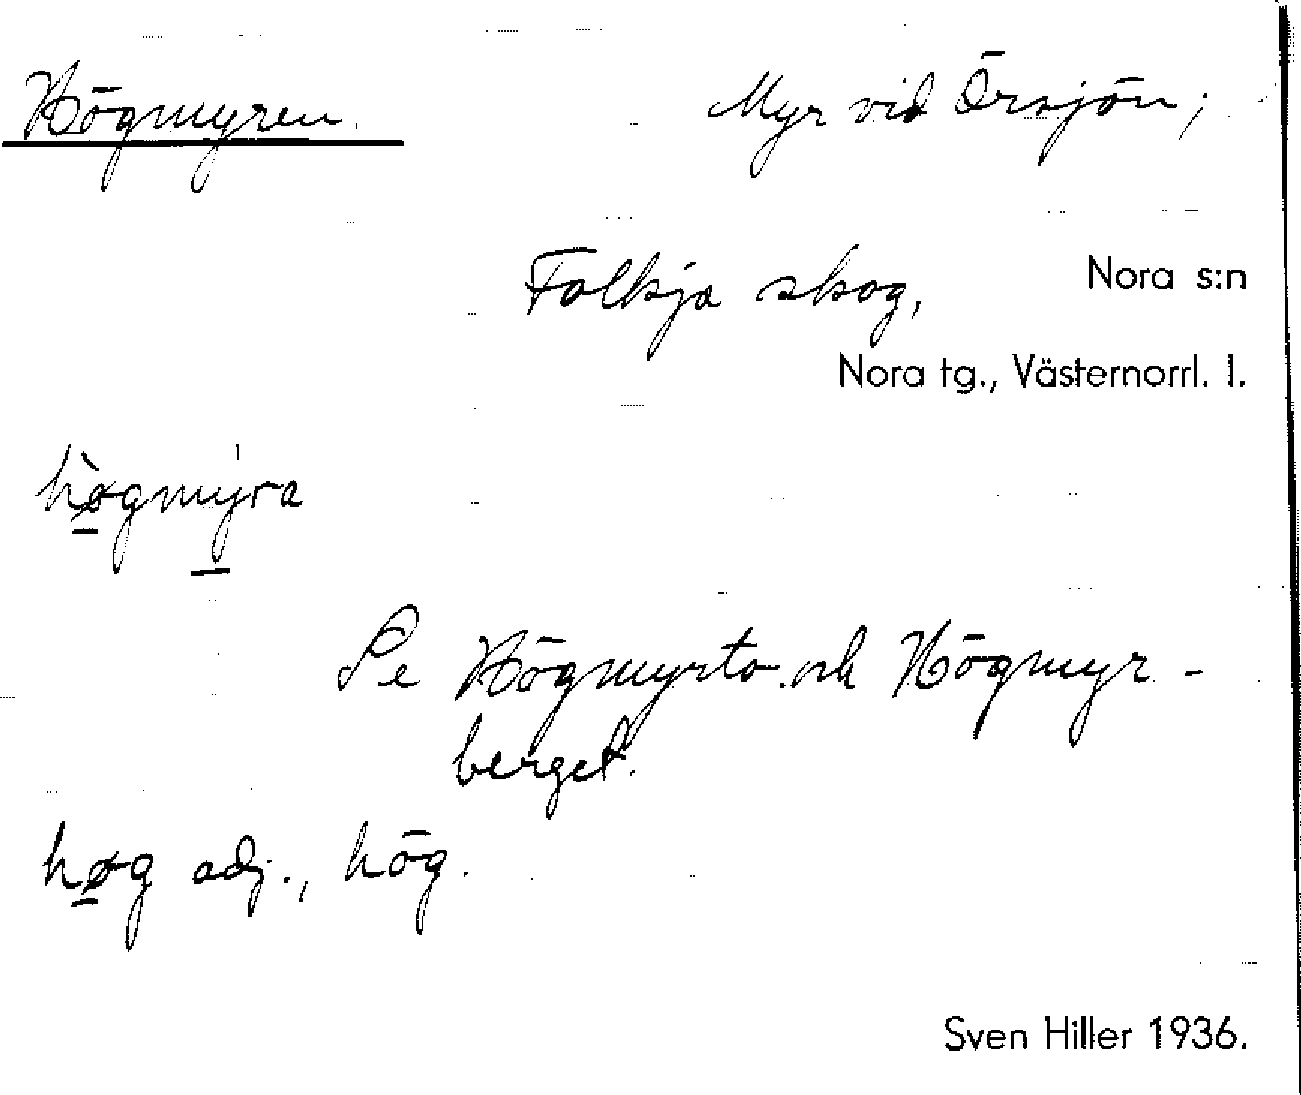 Högmyren. Myr vid Örsjön;
Folkja skog, Nora s:n
Nora tg., Västernorrl. l.
hø̲̀gmy̲̍ra
Se Högmyrto och Högmyr-
berget.
hø̲g adj., hög.
Sven Hiller 1936.